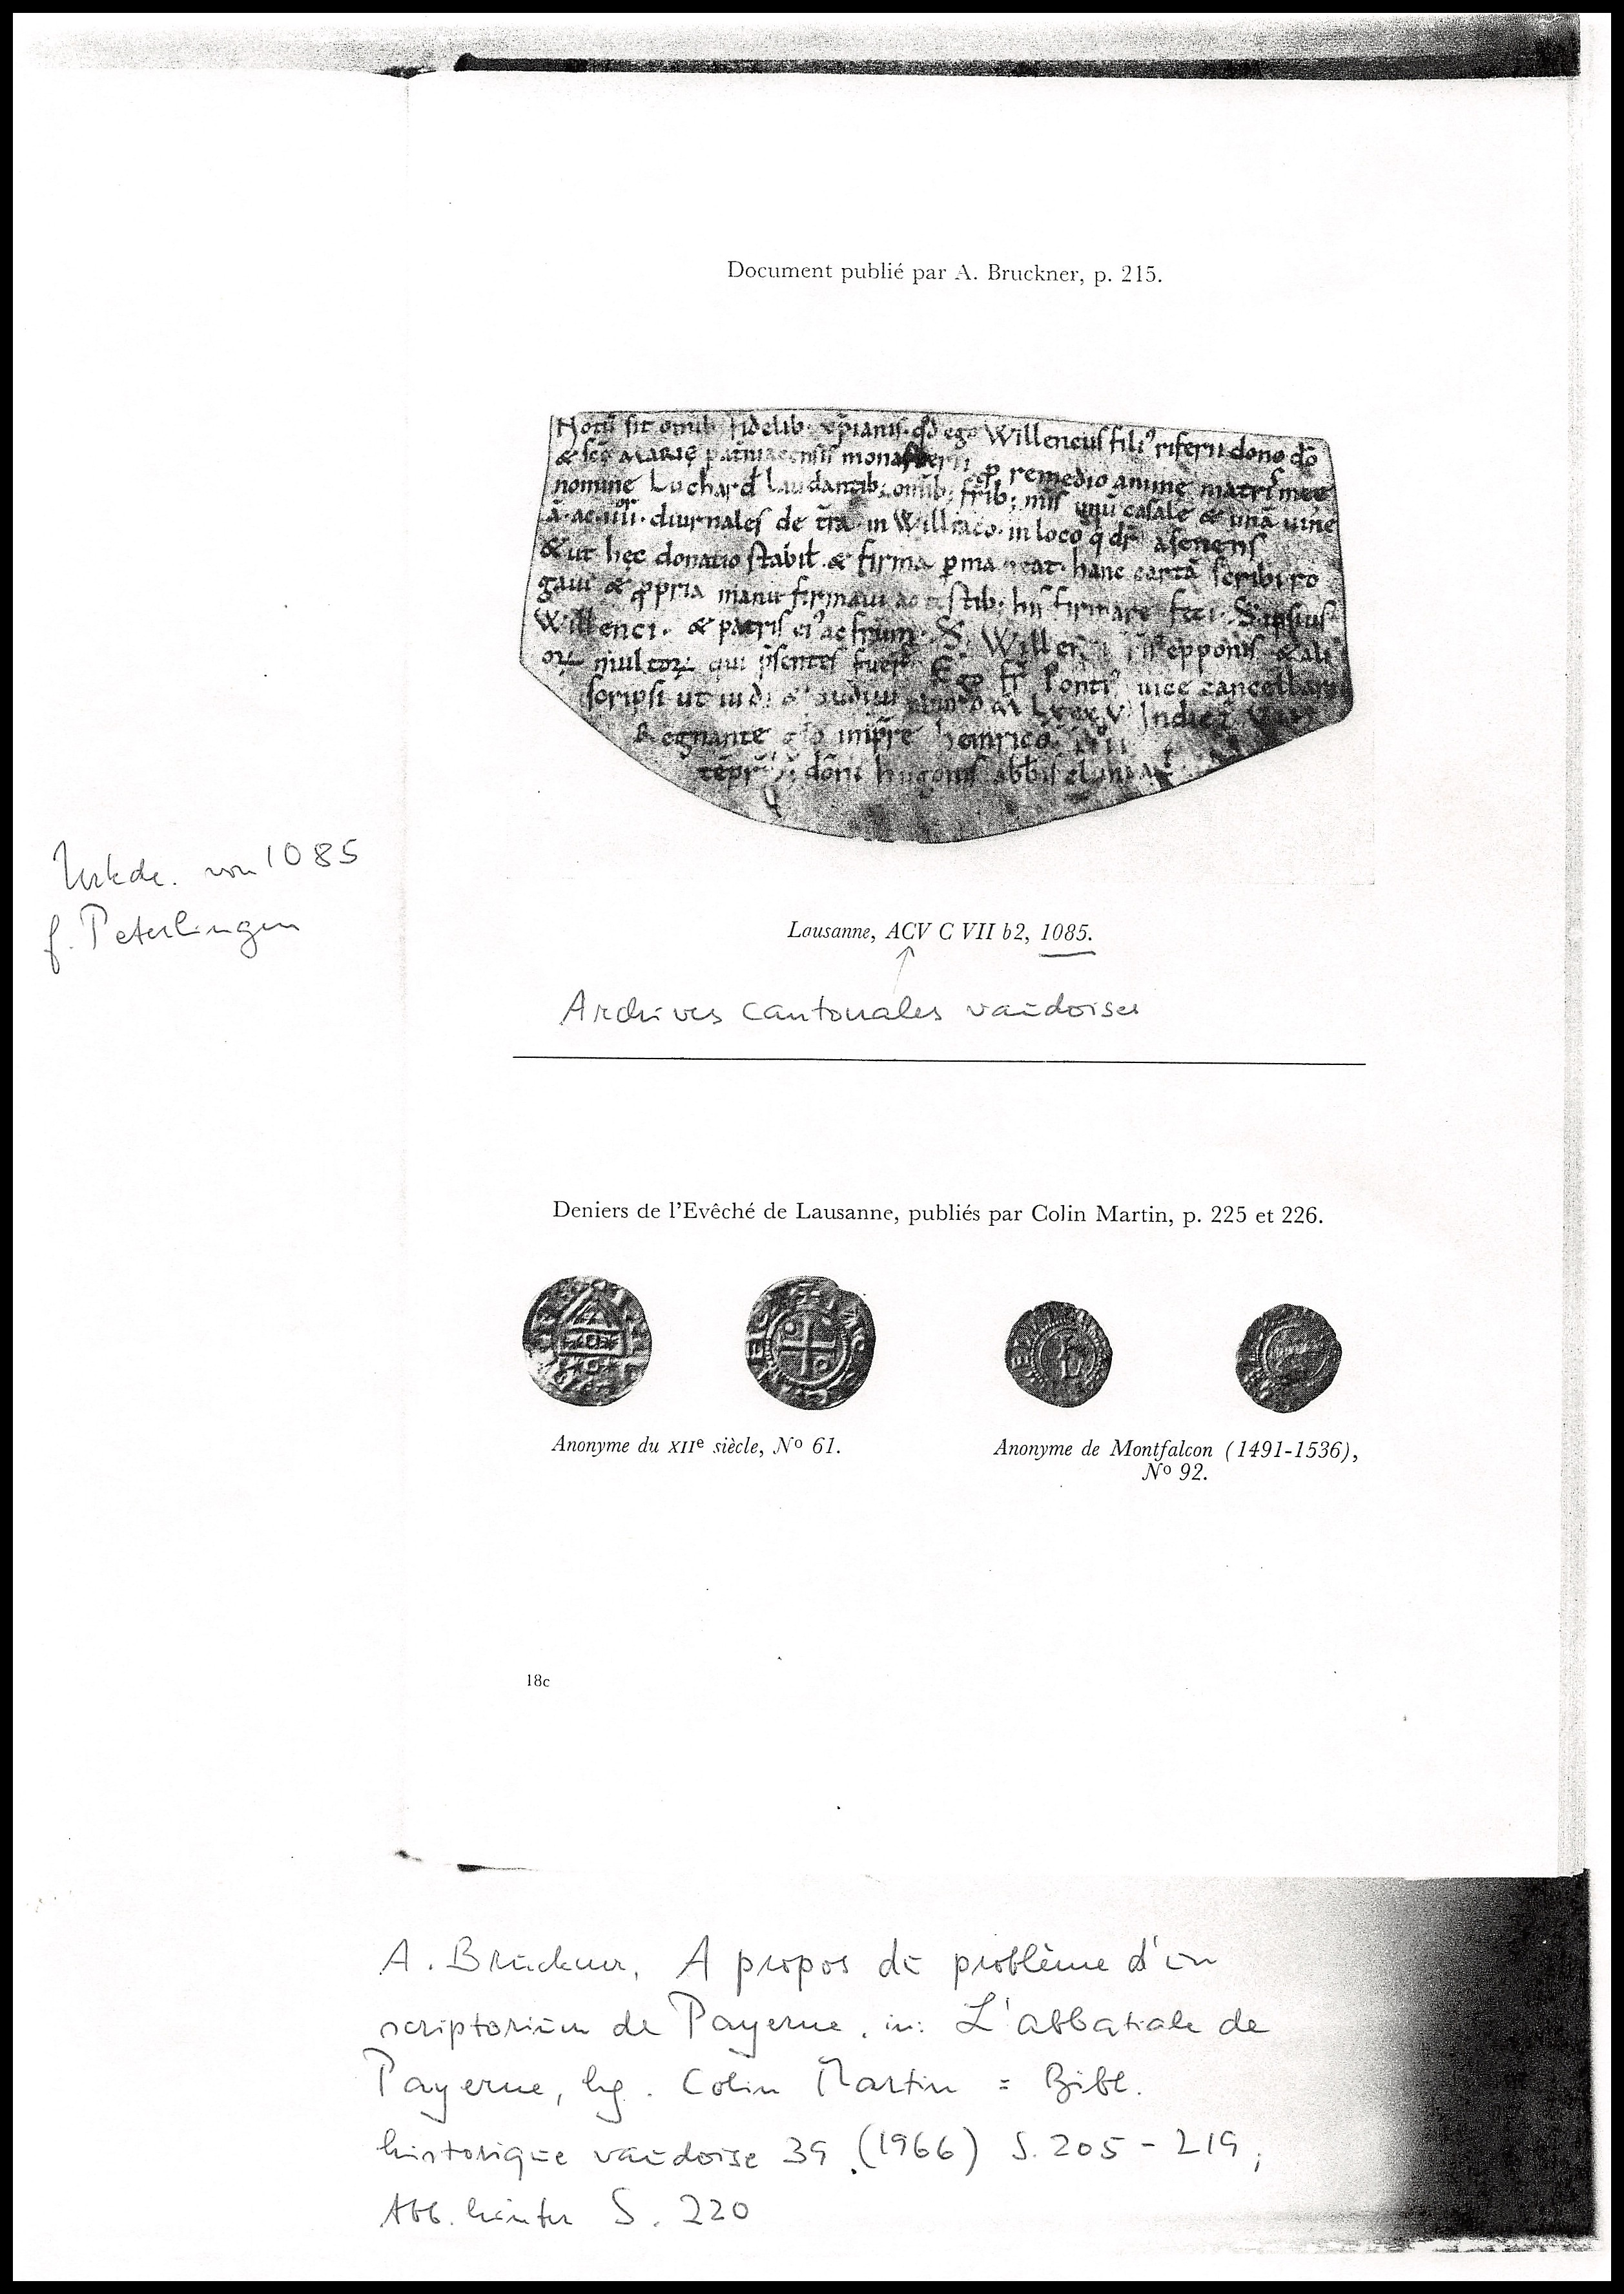 Document publié par A. Bruckner, p. 215.
Notū sit omīb fidelib xpianis qd ego Willencus fili' riferii dono dō
& scē MARIE paterniacensis monasterii p remedio anime matris mee
nomine Luchard laudantib; omīb; frīb; mīs unū casale & unā uine
ā ac IIII diurnales de trā in Williaco in loco q dr asenens
& ut hec donatio stabil & firma pmaneat hanc cartā scribi ro
gaui & ppria manu firmaui ac testib; his firmare feci S ipsius
Willenci & patris ei' ac frum S Willer epponis & ali
orꝝ multorꝝ qui psentes fuer Ego fr Ponti' uice cancellarii
scripsi ut uidi & audiui LXXXV Indict
Regnante impre heinrico IIII
tēpr dōni hugonis abbis
Urkde. von 1085
f. Peterlingen
Lausanne, ACV C VII b2, 1085.
Archives cantonales vaudoises
Deniers de l'Evêché de Lausanne, publiés par Colin Martin, p. 225 et 226.
Anonyme du XIIe siècle, No 61.
Anonyme de Montfalcon (1491-1536),
No 92.
18c
A. Bruckner, A propos du problème d'un
scriptorium de Payerne, in: L'abbatiale de
Payerne, hg. Colin Martin = Bibl.
historique vaudoise 39 (1966) S. 205 - 219;
Abb. hinter S. 220